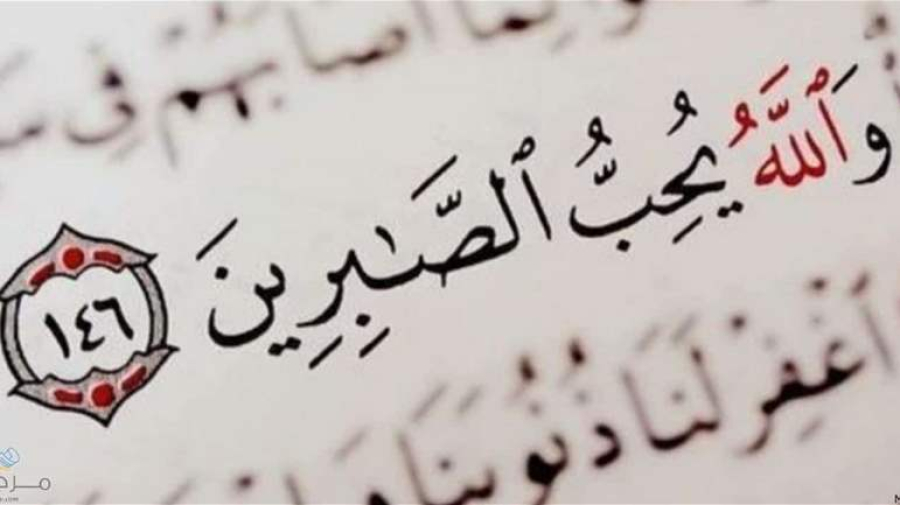 لِمَا أَصَابَهُمْ فِى
وَٱللَّهُ يُحِبُّ ٱلصَّـٰبِرِينَ ١٤٦
ٱغْفِرْ لَنَا ذُنُوبَنَا